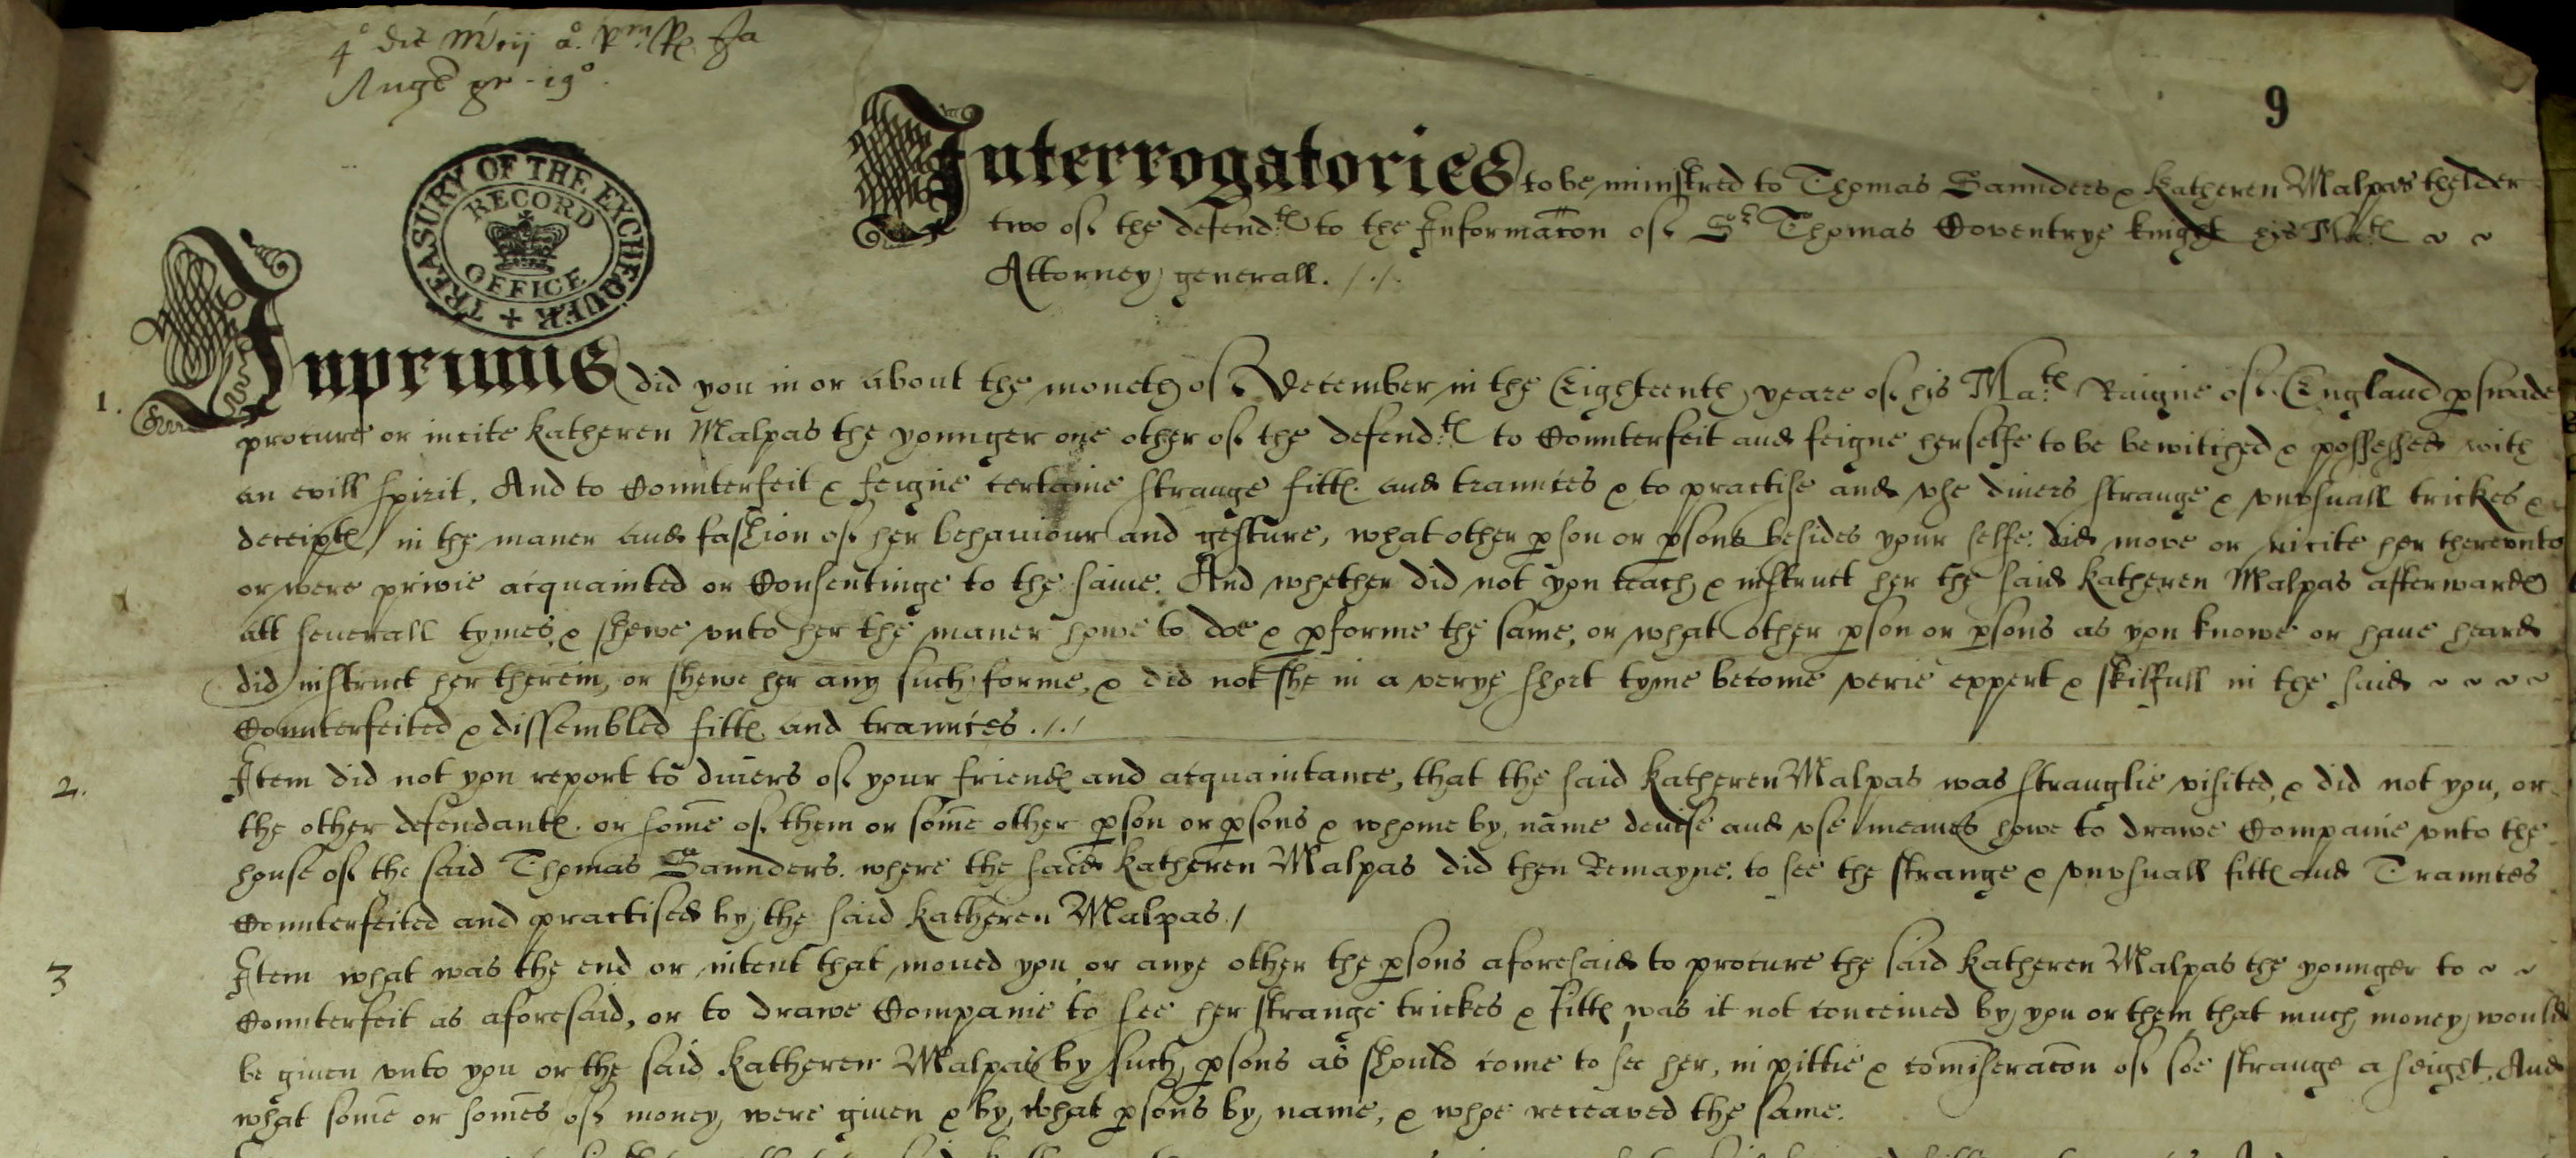 4o die Maij ao. Rni Rs Ja
Angl &c - 19o.
9
TREASURY OF THE EXCHEQUER
RECORD
OFFICE
Interrogatories to be ministred to Thomas Saunders & Katheren Malpas thelder
two of the defendts to the Informacon of Sr Thomas Coventrye knight his Mats ~ ~
Attorney generall. /./.
1. Inprimis did you in or about the moneth of December in the Eighteenth yeare of his Mats Raigne of England pswade
procure or incite Katheren Malpas the younger one other of the defendts to Counterfeit and feigne herselfe to be bewitched & possessed with
an evill spirit. And to Counterfeit & feigne certaine strange fitts and traunces & to practise and vse diuers strange & vnvsuall trickes &
deceipts in the maner and fashion of her behauiour and gesture, what other pson or psons besides your selfe did move or incite her therevnto
or were privie acquainted or Consentinge to the same. And whether did not you teach & instruct her the said Katheren Malpas afterwards
att seuerall tymes, & shewe vnto her the maner howe to doe & pforme the same, or what other pson or psons as you knowe or haue heard
did instruct her therein, or shewe her any such forme, & did not she in a verye short tyme become verie expert & skilfull in the said ~ ~ ~ ~
Counterfeited & dissembled fitts and traunces ./ ./
2. Item did not you report to diuers of your friends and acquaintance, that the said Katheren Malpas was stranglie visited, & did not you, or
the other defendants. or some of them or some other pson or psons & whome by name devise and vse meanes howe to drawe Companie vnto the
house of the said Thomas Saunders. where the said Katheren Malpas did then Remayne. to see the strange & vnvsuall fitts and Traunces
Counterfeited and practised by the said Katheren Malpas. /
3 Item what was the end or intent that moued you or anye other the psons aforesaid to procure the said Katheren Malpas the younger to ~ ~
Counterfeit as aforesaid, or to drawe Companie to see her strange trickes & fitts was it not conceiued by you or them that much money would
be giuen vnto you or the said Katheren Malpas by such psons as should come to see her, in pittie & comiseracon of soe strange a seight. And
what some or somes of money were giuen & by what psons by name, & whoe receaved the same.